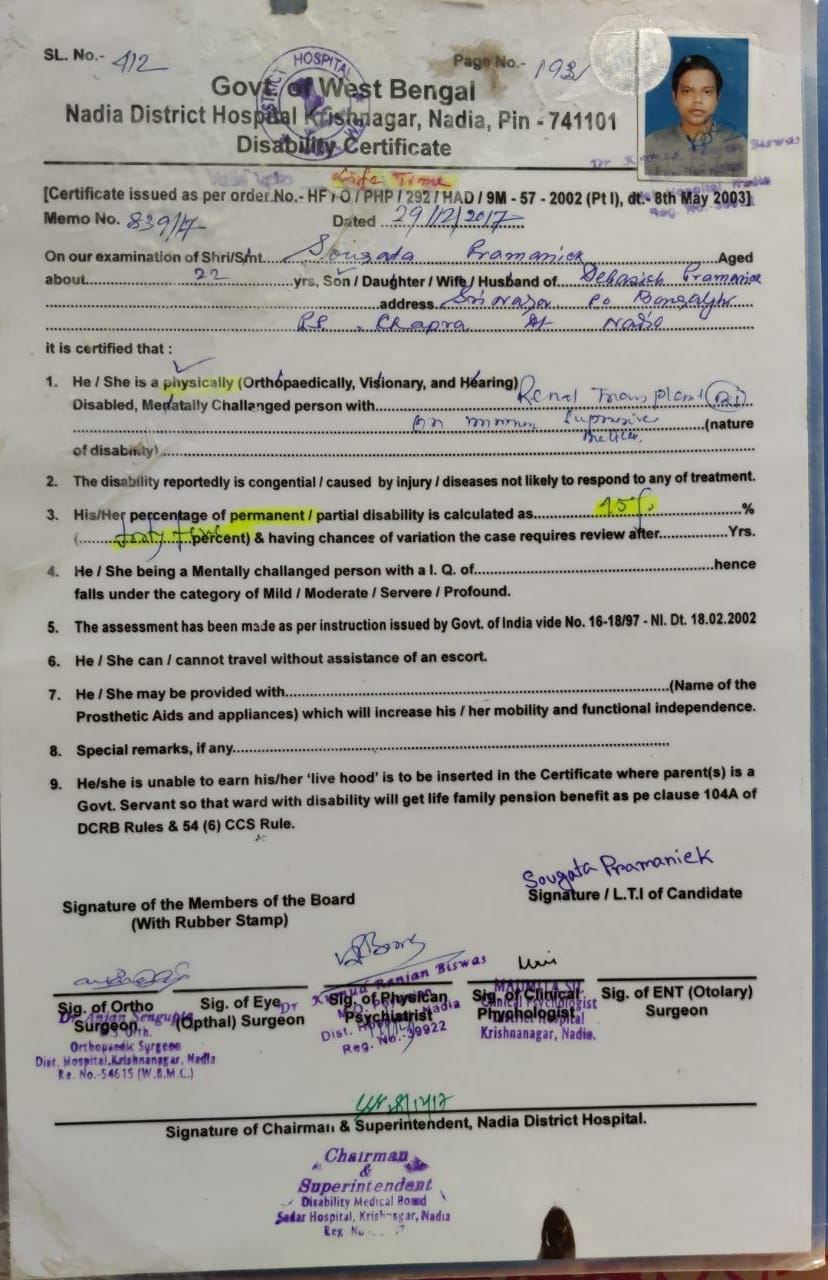 SL. No.- 412
Page No.- 193
HOSPITAL
Govt. of West Bengal
Nadia District Hospital Krishnagar, Nadia, Pin - 741101
Disability Certificate
Life Time
[Certificate issued as per order No.- HF / O / PHP / 292 / HAD / 9M - 57 - 2002 (Pt I), dt.- 8th May 2003]
Memo No. 839/17 Dated 29/12/2017
On our examination of Shri/Smt. Sougata Pramanick Aged
about 22 yrs, Son / Daughter / Wife / Husband of Debasish Pramanick
address Po Bangaljhi
P.S. Chapra Dt Nadia
it is certified that :
1. He / She is a physically (Orthopaedically, Visionary, and Hearing) Renal Transplant
Disabled, Menatally Challanged person with
on (nature
of disability)
2. The disability reportedly is congential / caused by injury / diseases not likely to respond to any of treatment.
3. His/Her percentage of permanent / partial disability is calculated as 45% %
( forty five percent) & having chances of variation the case requires review after Yrs.
4. He / She being a Mentally challanged person with a I. Q. of hence
falls under the category of Mild / Moderate / Servere / Profound.
5. The assessment has been made as per instruction issued by Govt. of India vide No. 16-18/97 - NI. Dt. 18.02.2002
6. He / She can / cannot travel without assistance of an escort.
7. He / She may be provided with (Name of the
Prosthetic Aids and appliances) which will increase his / her mobility and functional independence.
8. Special remarks, if any
9. He/she is unable to earn his/her 'live hood' is to be inserted in the Certificate where parent(s) is a
Govt. Servant so that ward with disability will get life family pension benefit as pe clause 104A of
DCRB Rules & 54 (6) CCS Rule.
Sougata Pramanick
Signature / L.T.I of Candidate
Signature of the Members of the Board
(With Rubber Stamp)
Sig. of Ortho
Surgeon
Sig. of Eye
(Opthal) Surgeon
Sig. of Physican
Psychiatrist
Sig. of Clinical
Phychologist
Sig. of ENT (Otolary)
Surgeon
Dr. Anjan Sengupta
Orthopaedic Surgeon
Dist. Hospital, Krishnanagar, Nadia
Re. No.-54615 (W.B.M.C.)
Dr Kumud Ranjan Biswas
Dist. Hospital, Nadia
Reg. No.-39922
Clinical Psychologist
District Hospital
Krishnanagar, Nadia.
Signature of Chairman & Superintendent, Nadia District Hospital.
Chairman
&
Superintendent
Disability Medical Board
Sadar Hospital, Krishnagar, Nadia